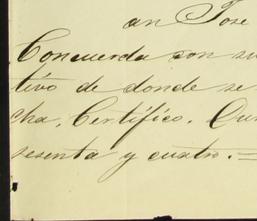 an José
Concuerda con su
tivo de donde se
cha. Certifico. Qu
sesenta y cuatro.=